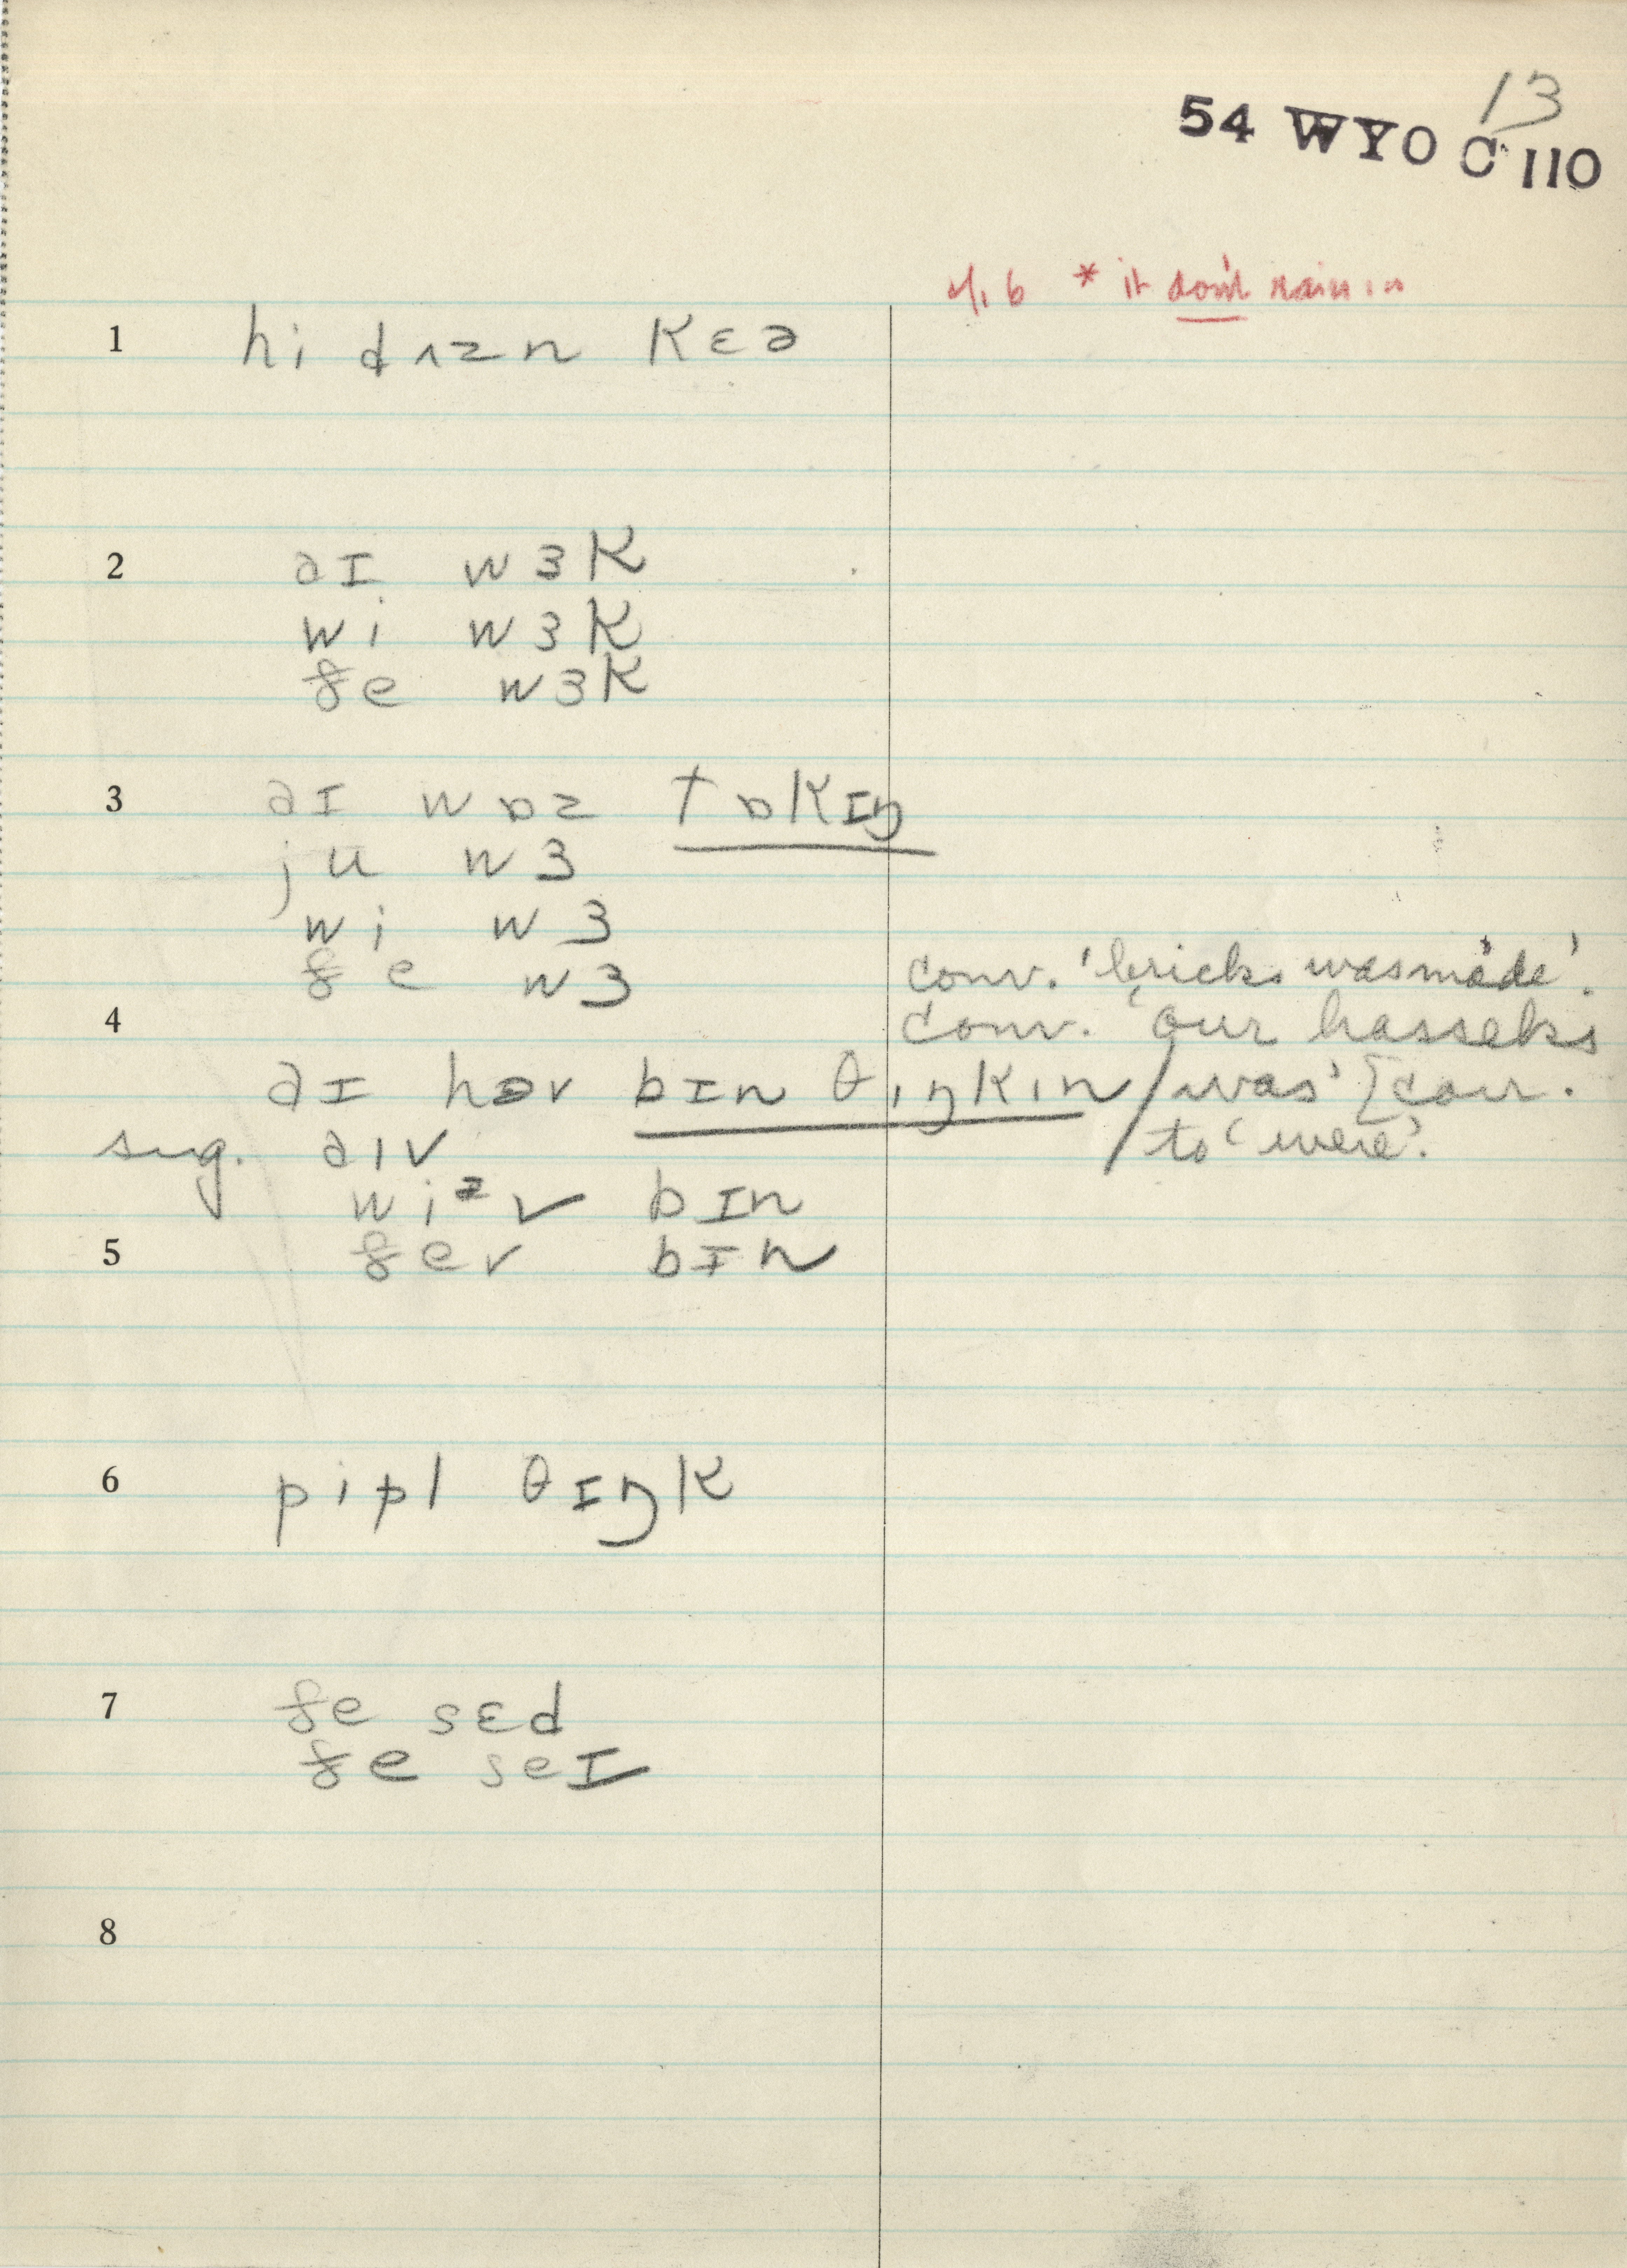 13
54 WYO C 110
4,6 * it don't rain in
1 hi dʌzn kɛə
2 aɪ wɜk
wi wɜk
ðe wɜk
3 aɪ wɒz tɒkɪŋ
ju wɜ
wi wɜ
ðe wɜ
conv. 'bricks was made'.
4 conv. 'our hasseks
aɪ həv bɪn θɪŋkɪn / was' [corr.
sug. aɪv to 'were'.
wi v bɪn
5 ðev bɪn
6 pipl θɪŋk
7 ðe sɛd
ðe seɪ
8